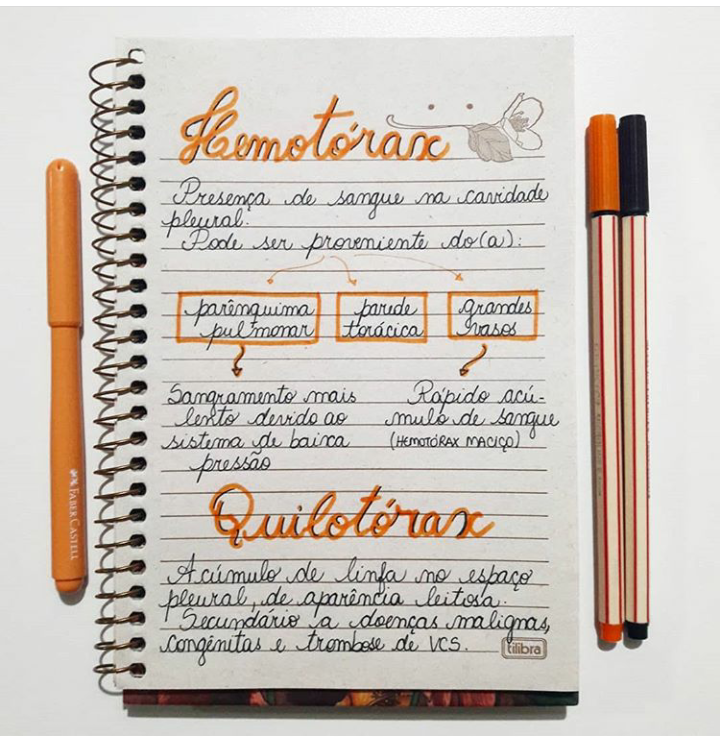 Hemotórax
Presença de sangue na cavidade
pleural.
Pode ser proveniente do(a):
parênquima
pulmonar
parede
torácica
grandes
vasos
Sangramento mais
lento devido ao
sistema de baixa
pressão
Rápido acú-
mulo de sangue
(HEMOTÓRAX MACIÇO)
Quilotórax
Acúmulo de linfa no espaço
pleural, de aparência leitosa.
Secundário a doenças malignas,
congênitas e trombose de VCS.
tilibra
FABER-CASTELL